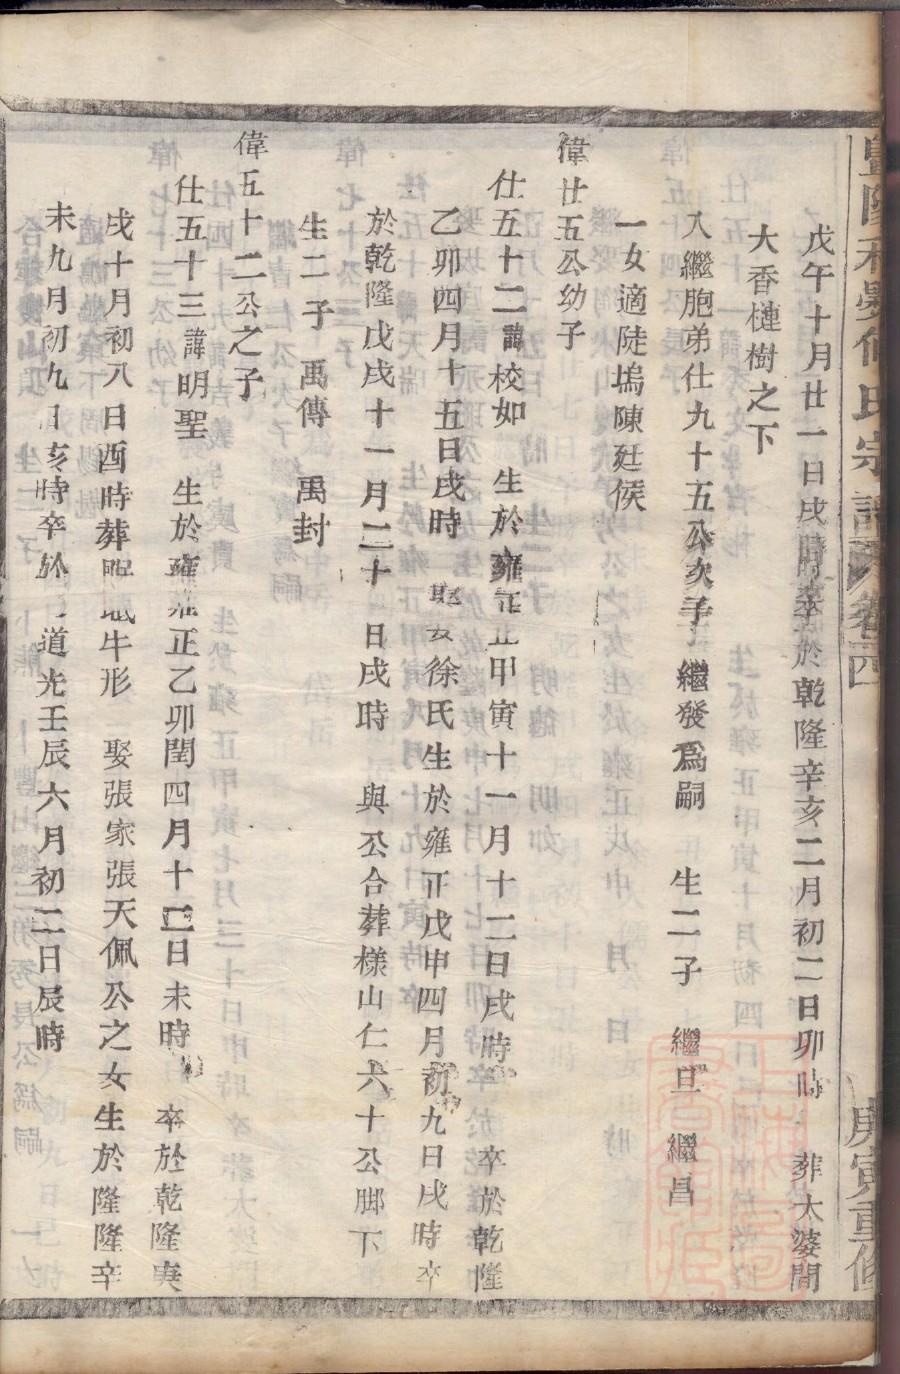 戊午十月廿一日戌時卒於乾隆辛亥二月初二日卯時 葬大婆間
大香槤樹之下
入繼胞弟仕九十五公次子 繼發爲嗣 生二子 繼旦 繼昌
一女適陡塢陳廷侯
偉廿五公幼子
仕五十二諱校如 生於雍正甲寅十一月十二日戌時 卒於乾隆
乙卯四月十五日戌時 娶安徐氏生於雍正戊申四月初九日戌時卒
於乾隆戊戌十一月二十日戌時 與公合葬樣山仁六十公脚下
生二子 禹傳 禹封
偉五十二公之子
仕五十三諱明聖 生於雍正乙卯閏四月十二日未時 卒於乾隆庚
戌十月初八日酉時葬 牛形 娶張家張天佩公之女生於隆隆辛
未九月初九日亥時卒於道光壬辰六月初二日辰時
氏宗譜 卷四
庚寅重修